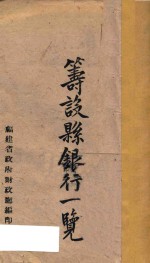 籌設縣銀行一覽
福建省政府財政廳編印